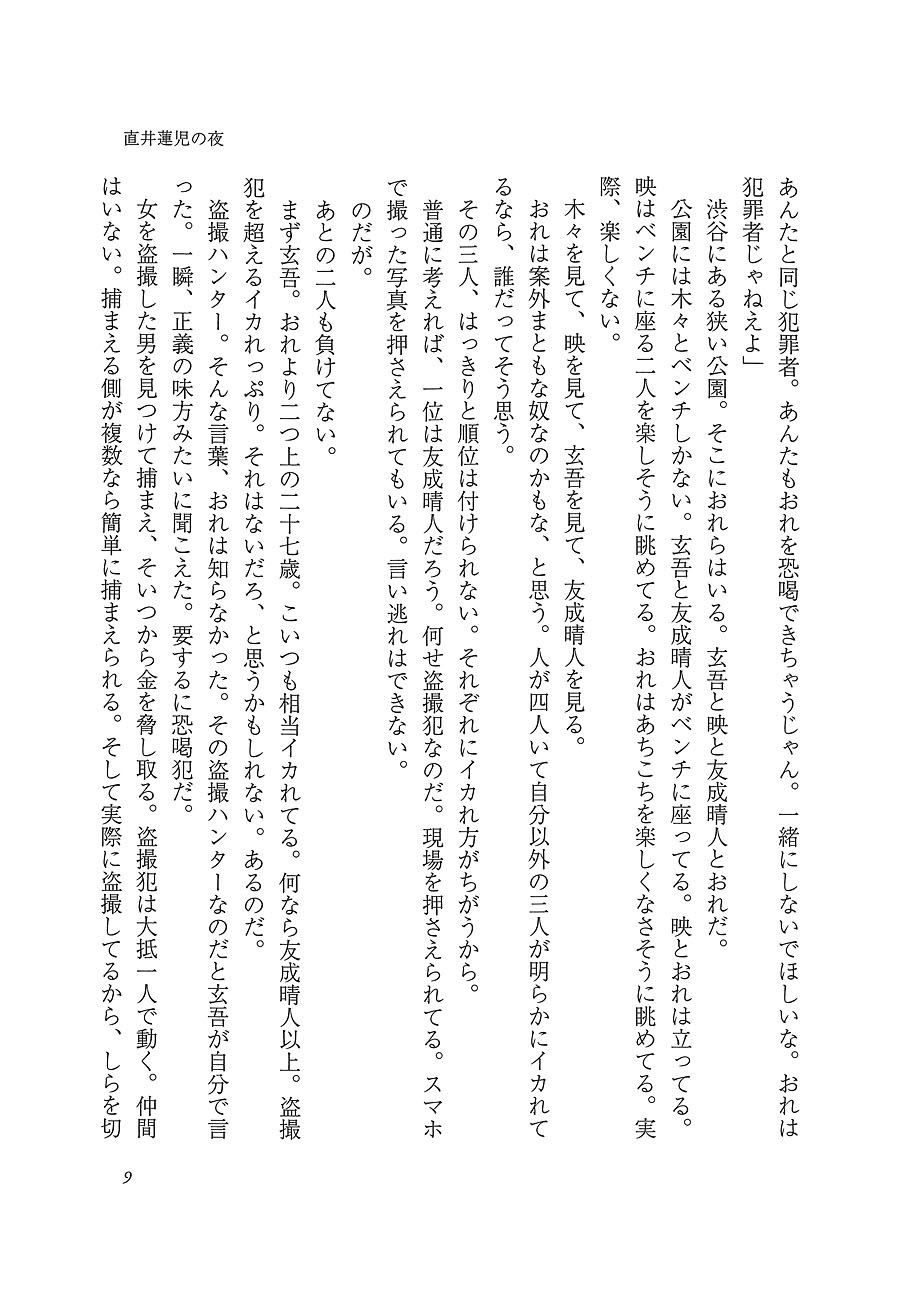 直井蓮児の夜
あんたと同じ犯罪者。あんたもおれを恐喝できちゃうじゃん。一緒にしないでほしいな。おれは
犯罪者じゃねえよ」
渋谷にある狭い公園。そこにおれらはいる。玄吾と映と友成晴人とおれだ。
公園には木々とベンチしかない。玄吾と友成晴人がベンチに座ってる。映とおれは立ってる。
映はベンチに座る二人を楽しそうに眺めてる。おれはあちこちを楽しくなさそうに眺めてる。実
際、楽しくない。
木々を見て、映を見て、玄吾を見て、友成晴人を見る。
おれは案外まともな奴なのかもな、と思う。人が四人いて自分以外の三人が明らかにイカれて
るなら、誰だってそう思う。
その三人、はっきりと順位は付けられない。それぞれにイカれ方がちがうから。
普通に考えれば、一位は友成晴人だろう。何せ盗撮犯なのだ。現場を押さえられてる。スマホ
で撮った写真を押さえられてもいる。言い逃れはできない。
のだが。
あとの二人も負けてない。
まず玄吾。おれより二つ上の二十七歳。こいつも相当イカれてる。何なら友成晴人以上。盗撮
犯を超えるイカれっぷり。それはないだろ、と思うかもしれない。あるのだ。
盗撮ハンター。そんな言葉、おれは知らなかった。その盗撮ハンターなのだと玄吾が自分で言
った。一瞬、正義の味方みたいに聞こえた。要するに恐喝犯だ。
女を盗撮した男を見つけて捕まえ、そいつから金を脅し取る。盗撮犯は大抵一人で動く。仲間
はいない。捕まえる側が複数なら簡単に捕まえられる。そして実際に盗撮してるから、しらを切
9